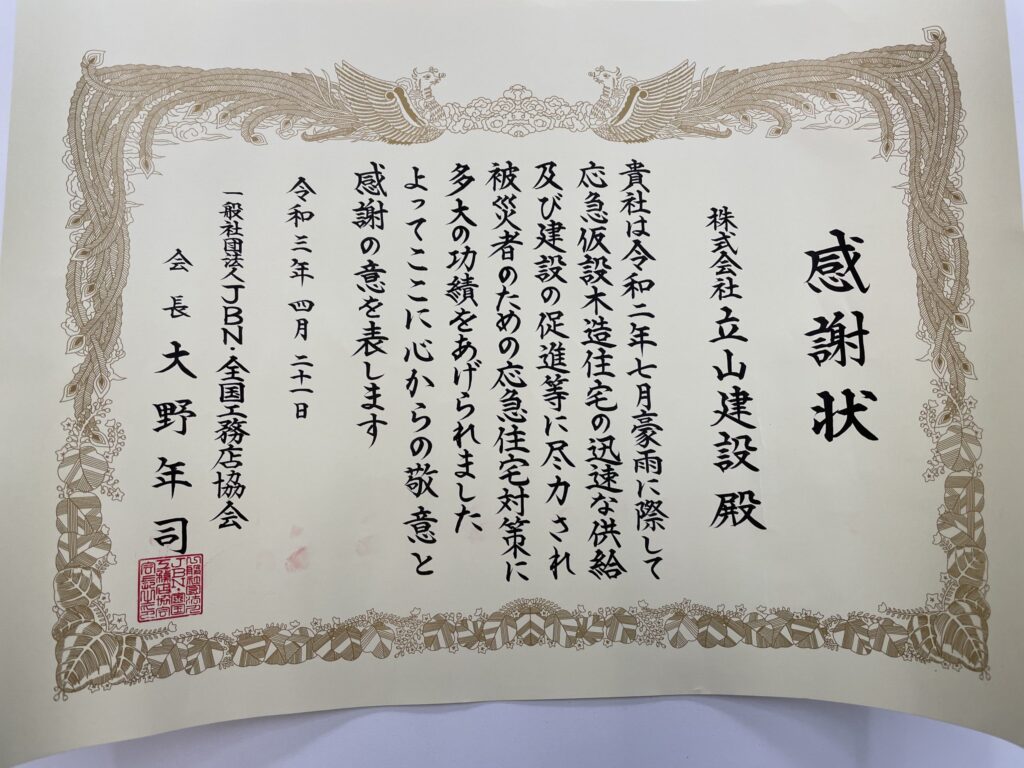 感謝状
株式会社 立山建設 殿
貴社は令和二年七月豪雨に際して
応急仮設木造住宅の迅速な供給
及び建設の促進等に尽力され
被災者のための応急住宅対策に
多大の功績をあげられました
よってここに心からの敬意と
感謝の意を表します
令和三年 四月 二十一日
一般社団法人JBN・全国工務店協会
会長 大野年司